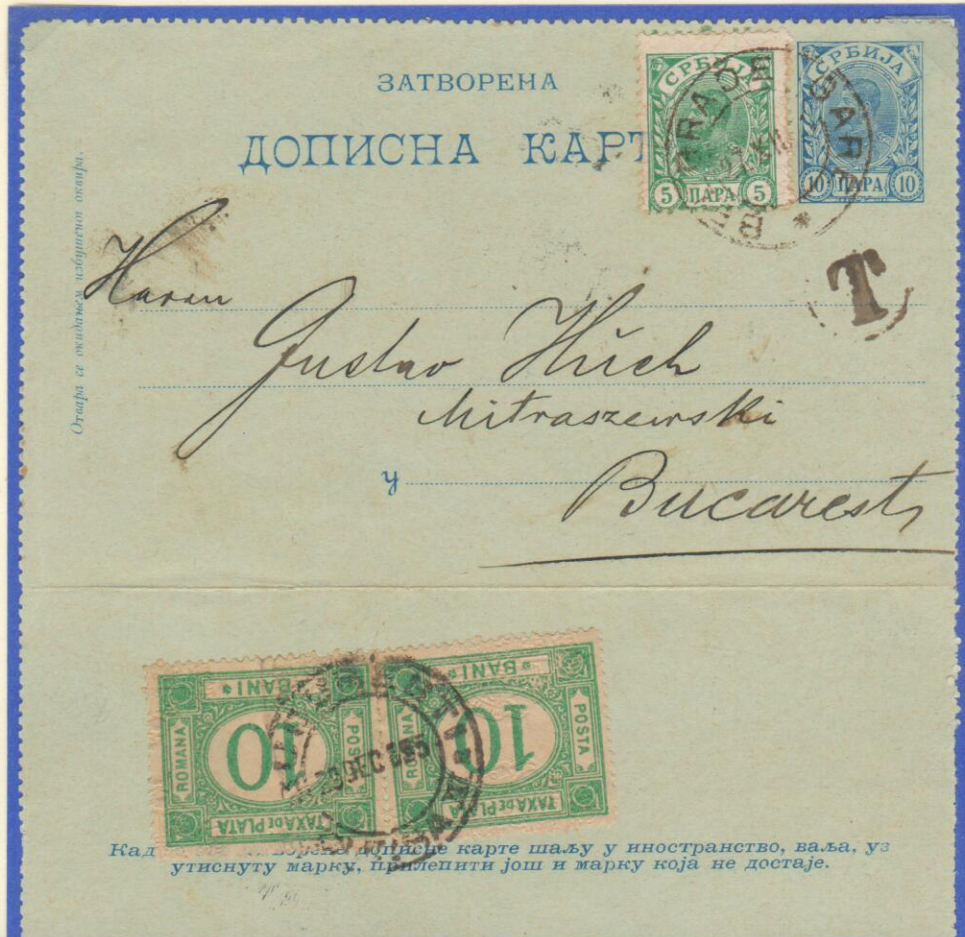 ЗАТВОРЕНА
ДОПИСНА КАРТ
СРБИЈА
5 ПАРА 5
СРБИЈА
10 ПАРА 10
T
Отвара се окидањем избушеног оквира.
Gustav
Mitraszewski
у
Bucarest
BANI
POSTA
ROMANA
10
TAXA DE PLATA
BANI
POSTA
ROMANA
10
TAXA DE PLATA
Кад дописне карте шаљу у иностранство, ваља, уз
утиснуту марку, прилепити још и марку која не достаје.